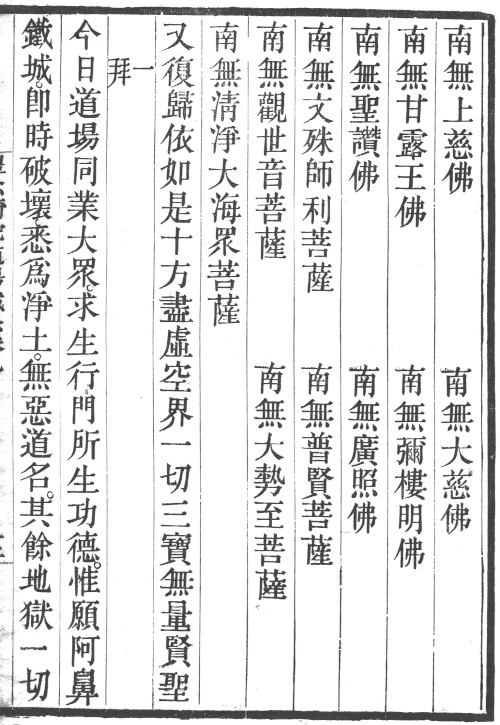 南無上慈佛　南無大慈佛
南無甘露王佛　南無彌樓明佛
南無聖讚佛　南無廣照佛
南無文殊師利菩薩　南無普賢菩薩
南無觀世音菩薩　南無大勢至菩薩
南無清淨大海眾菩薩
又復歸依如是十方盡虛空界一切三寶無量賢聖
一拜
今日道場同業大眾。求生行門所生功德。惟願阿鼻
鐵城。即時破壞悉為淨土。無惡道名。其餘地獄一切